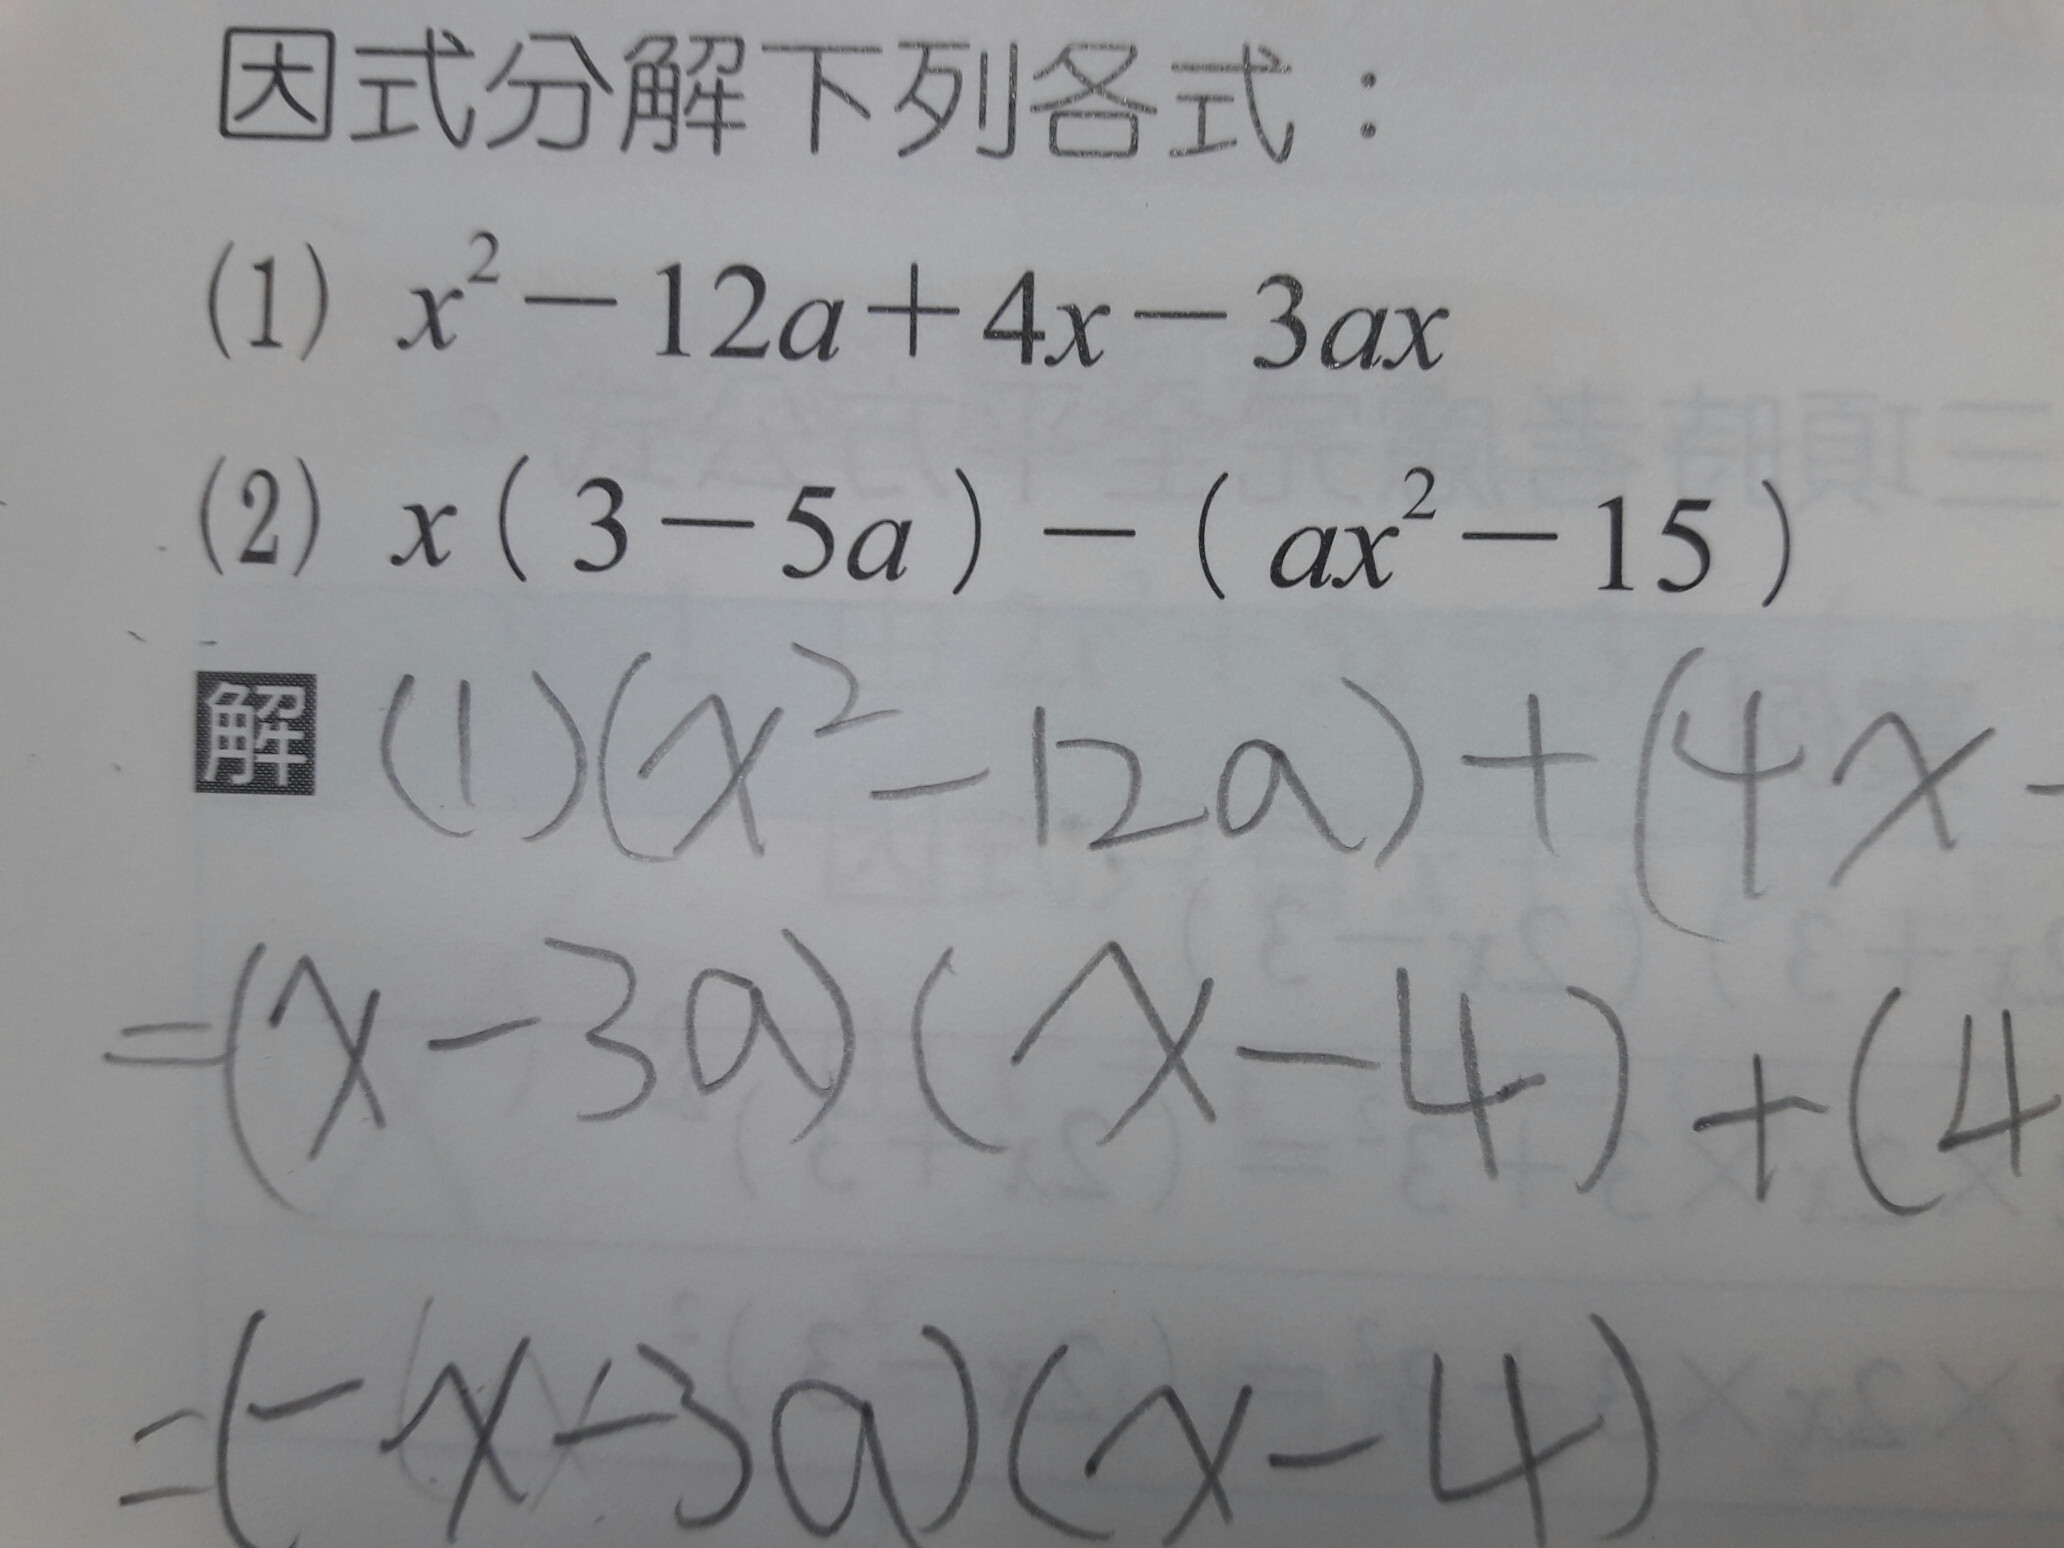 因式分解下列各式：
(1) x² − 12a + 4x − 3ax
(2) x ( 3 − 5a ) − ( ax² − 15 )
解 (1) (x² − 12a) + (4x −
= (x − 3a) (x − 4) + (4
= (− x − 3a) (x − 4)